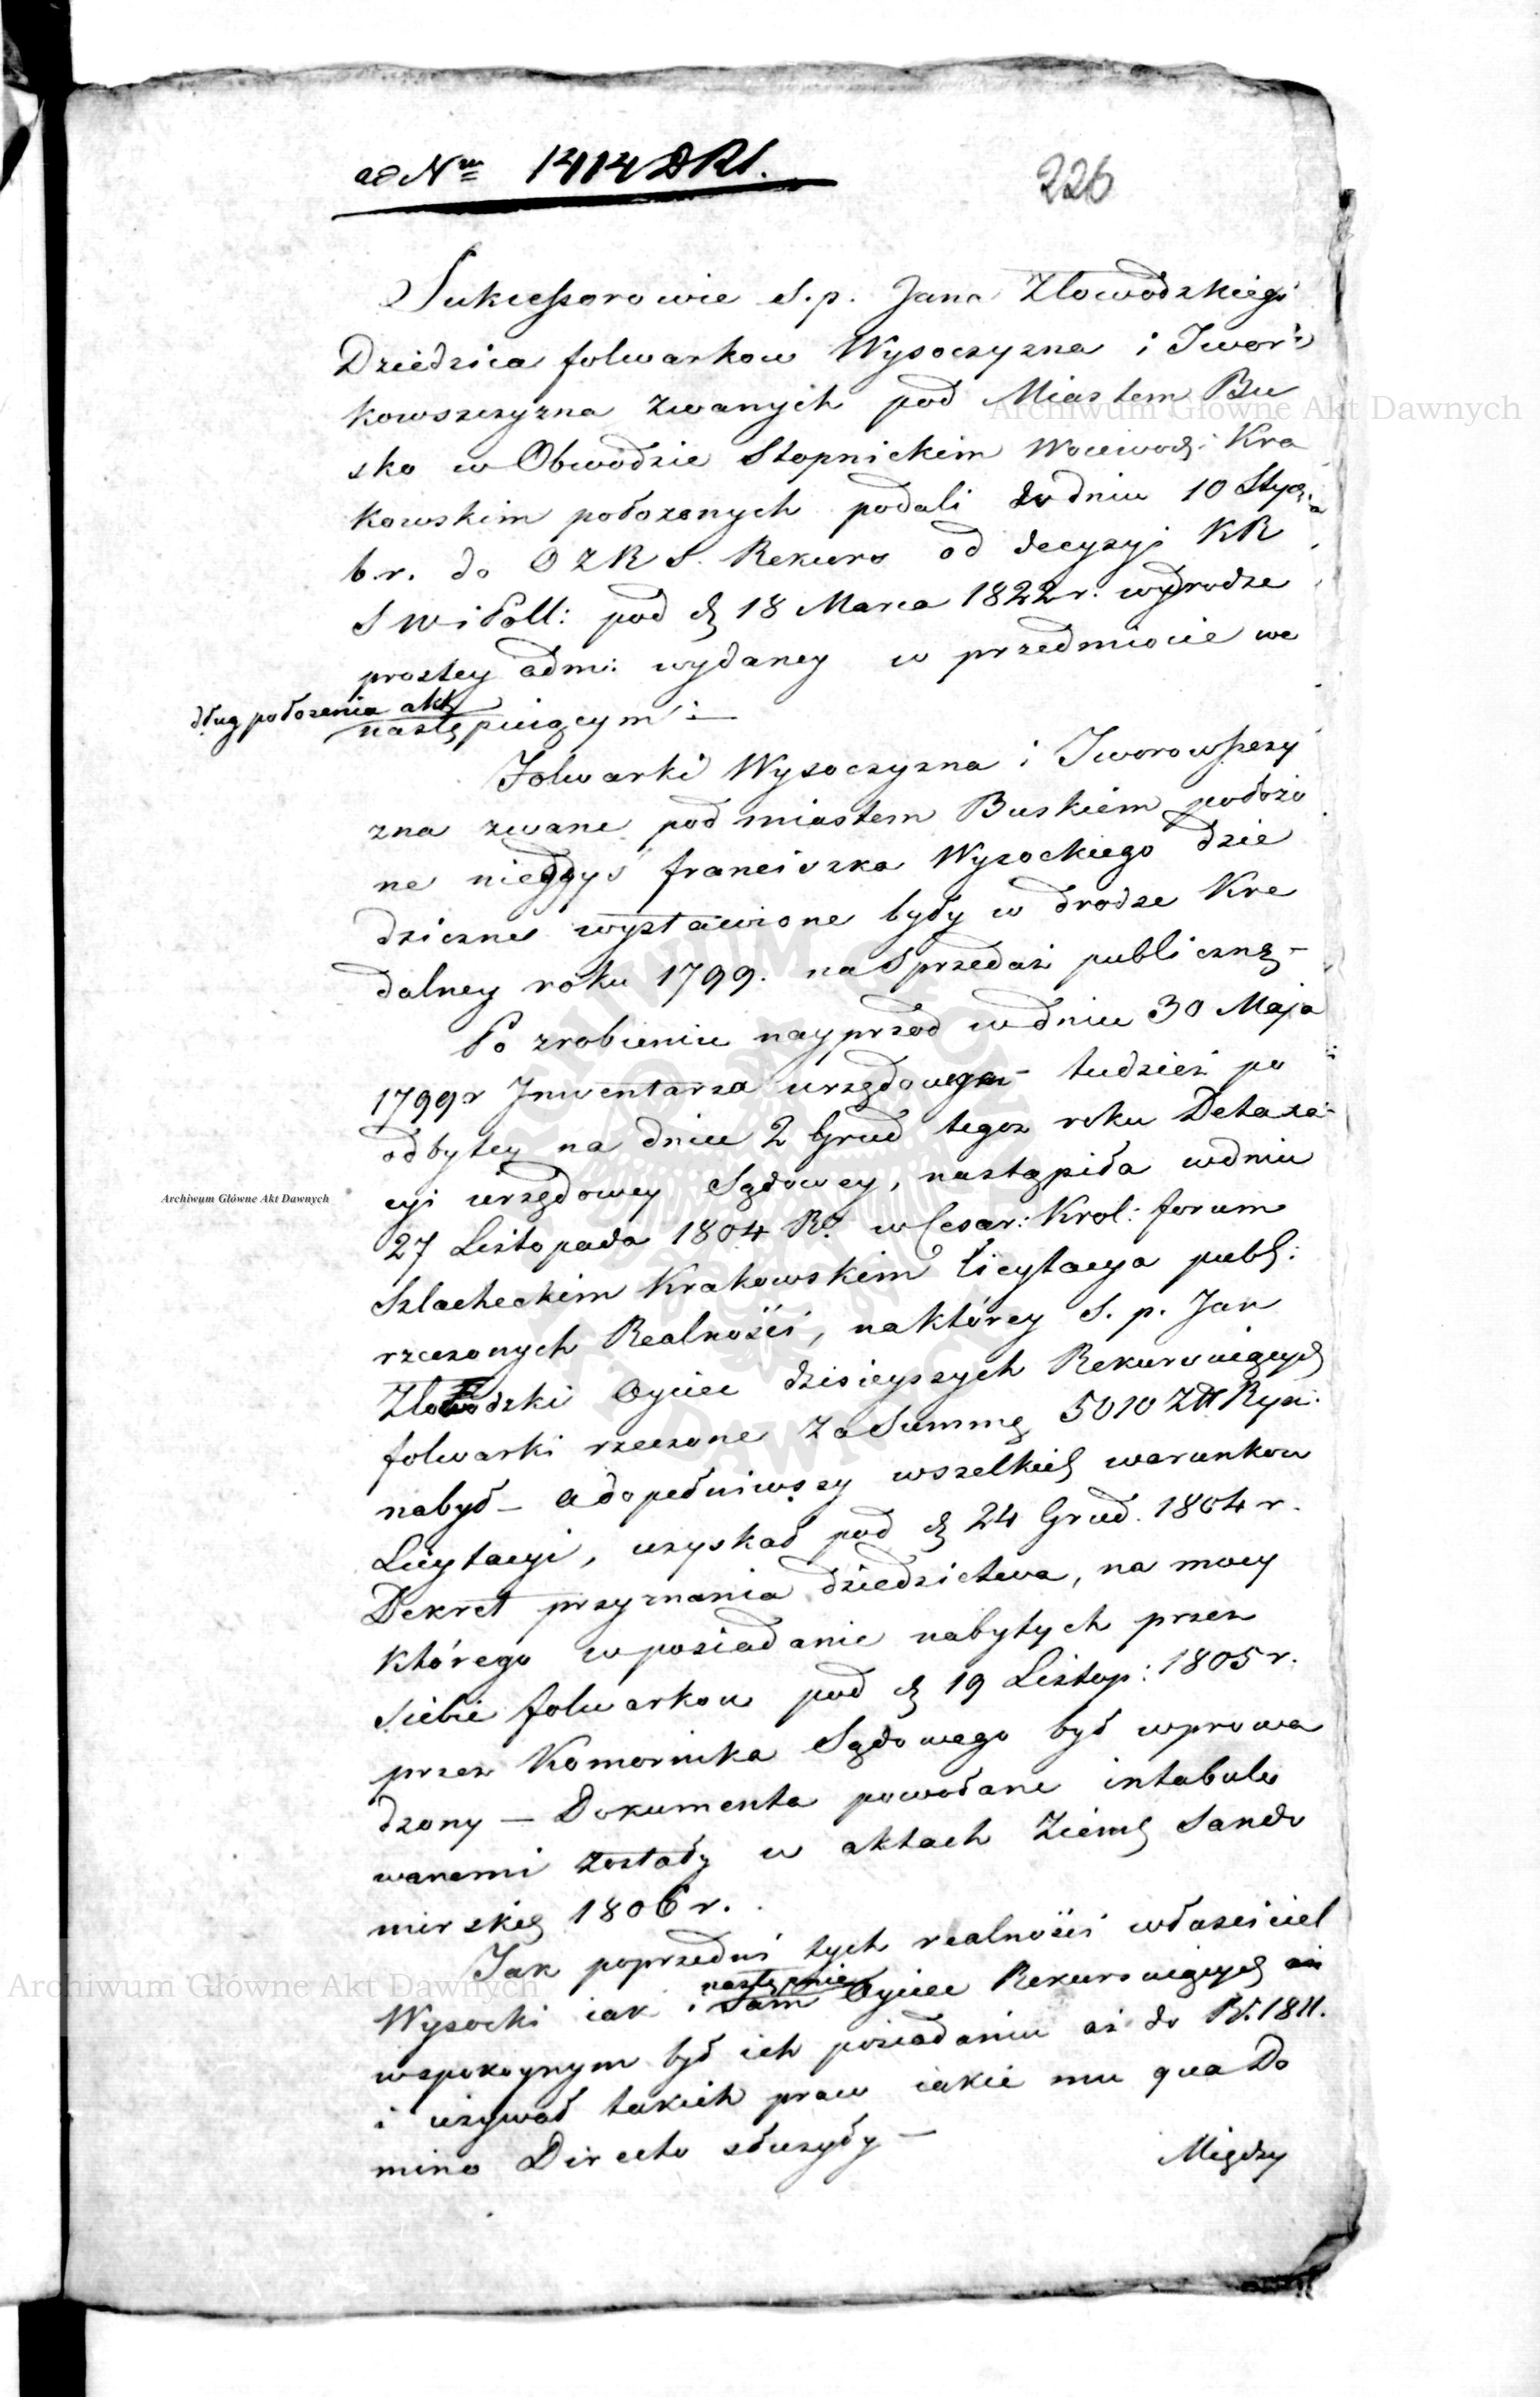 ad Nm 1414 DRS.
226
Sukcessorowie S.p. Jana Złowodzkiego
Dziedzica folwarkow Wysoczyzna i Iwor
kowszczyzna zwanych pod Miastem Bu
sko w Obwodzie Stopnickim Woiewodz: Kra
kowskim położonych podali w dniu 10 Stycz:
b.r. do O Z R S. Rekurs od decyzyi KR
S W i Poll: pod d. 18 Marca 1822 r. w drodze
prostey adm: wydaney w przedmiocie we
dług położenia akt
następuiącym:—
Folwarki Wysoczyzna i Iworowszczy
zna zwane pod miastem Buskiem położo
ne niegdyś franciszka Wysockiego dzie
dziczne wystawione były w drodze Kre
dalney roku 1799. na Sprzedaż publiczną—
Po zrobieniu nayprzod w dniu 30 Maja
1799 r Inwentarza urzędowego— tudzież po
odbytey na dniu 2 Grud tegoz roku Detaxa-
cyi urzędowey Sądowey, nastąpiła w dniu
27 Listopada 1804 R. w Cesar: Krol: forum
Szlacheckim Krakowskim licytacya publ:
rzeczonych Realności, na którey S. p. Jan
Złowodzki Oyciec dzisieyszych Rekuruiących
folwarki rzeczone za Summę 5010 Zł Ryn:
nabył— a dopełniwszy wszelkich warunkow
Licytacyi, uzyskał pod d. 24 Grud. 1804 r.
Dekret przyznania dziedzictwa, na mocy
którego w posiadanie nabytych przez
siebie folwarkow pod d. 19 Listop: 1805 r.
przez Komornika Sądowego był wprowa
dzony — Dokumenta powołane intabulo
wanemi zostały w aktach Ziems Sando
mirskich 1806 r.
Jak poprzedni tych realności właściciel
Wysocki iak i następnie sam Oyciec Rekuruiących
w spokoynym był ich posiadaniu aż do R. 1811.
i używał takich praw iakie mu qua Do
mino Directo służyły —
Między
Archiwum Główne Akt Dawnych
Archiwum Główne Akt Dawnych
Archiwum Główne Akt Dawnych
ARCHIWUM GŁÓWNE AKT DAWNYCH